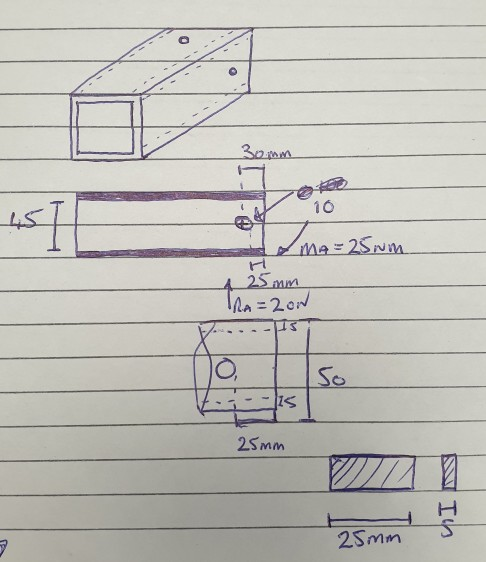 30mm
45
10
MA = 25NM
25mm
RA = 20N
15
50
15
25mm
25mm
5